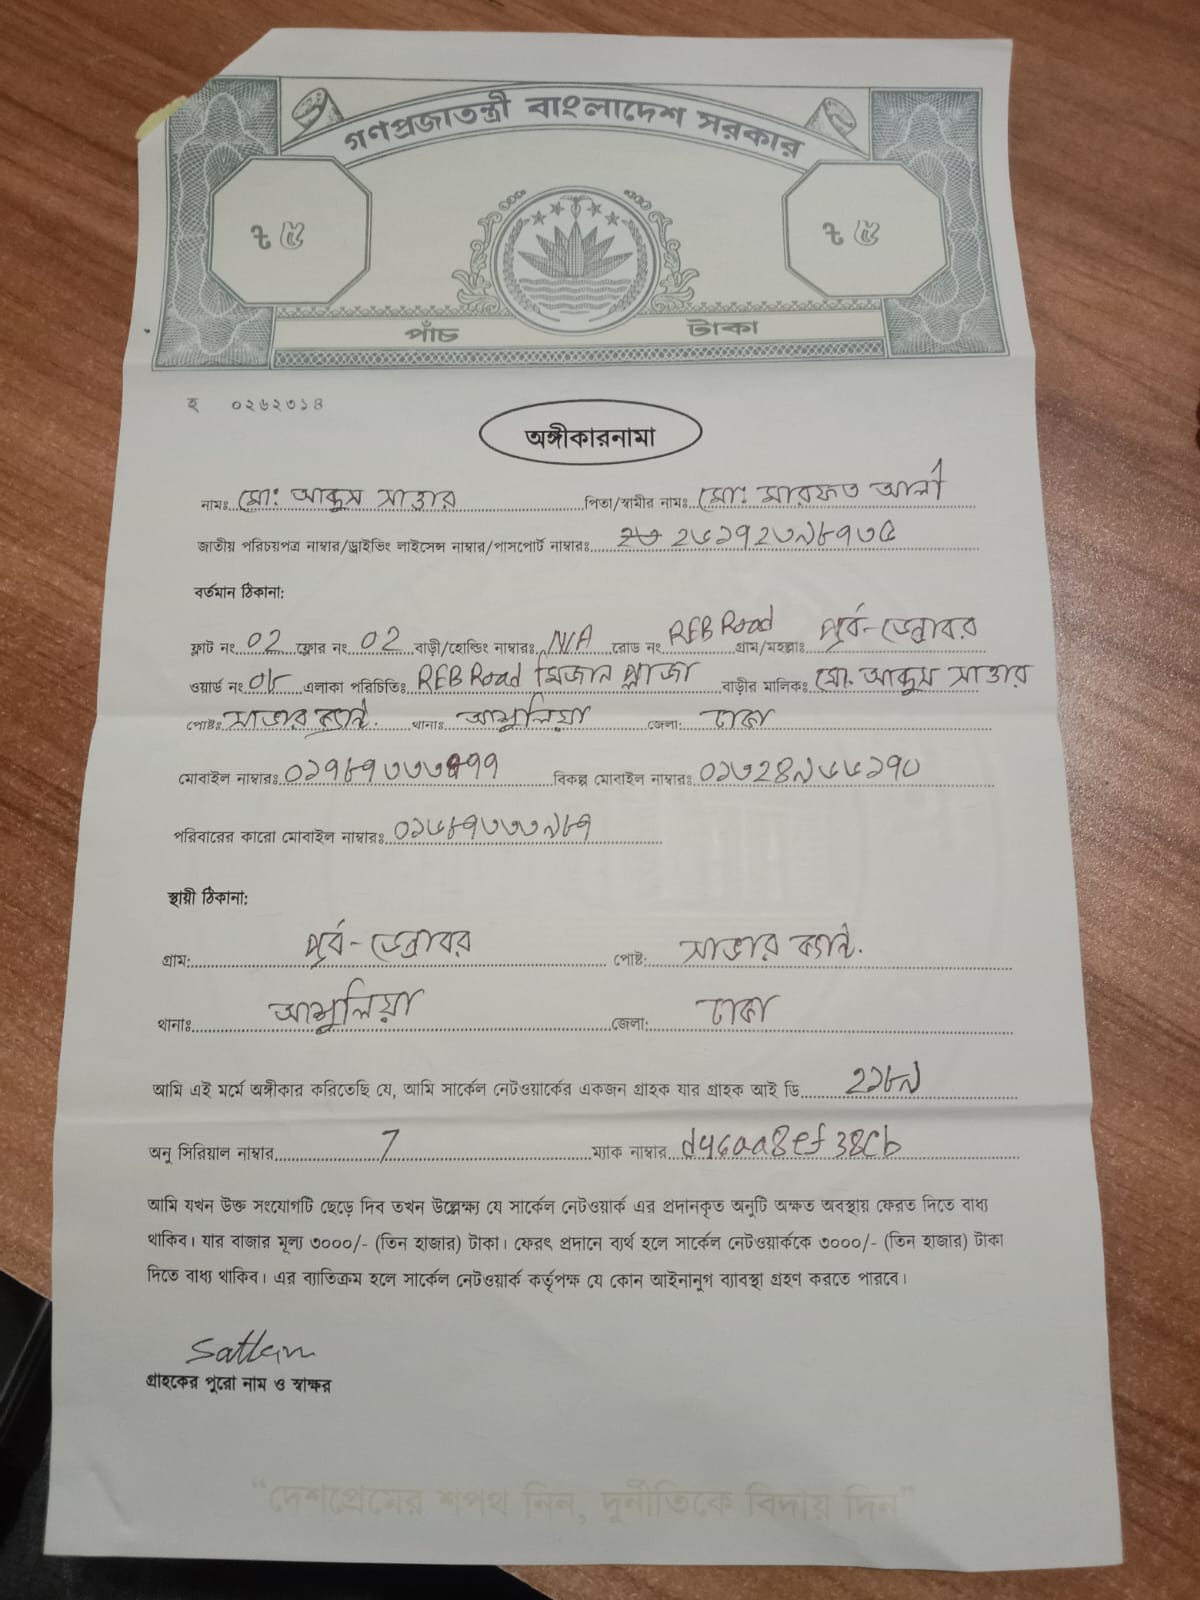 গণপ্রজাতন্ত্রী বাংলাদেশ সরকার
৳ ৫ ৳ ৫
পাঁচ টাকা
হ ০২৬২৩১৪
অঙ্গীকারনামা
নামঃ মো: আব্দুস সাত্তার পিতা/স্বামীর নামঃ মো: মারফত আলী
জাতীয় পরিচয়পত্র নাম্বার/ড্রাইভিং লাইসেন্স নাম্বার/পাসপোর্ট নাম্বারঃ
বর্তমান ঠিকানা:
ফ্লাট নং 02 ফ্লোর নং 02 বাড়ী/হোল্ডিং নাম্বারঃ N/A রোড নং REB Road গ্রাম/মহল্লাঃ পূর্ব-ডেন্ডাবর
ওয়ার্ড নং ০৮ এলাকা পরিচিতিঃ REB Road মিজান প্লাজা বাড়ীর মালিকঃ মো. আব্দুস সাত্তার
পোষ্টঃ সাভার ক্যান্ট. থানাঃ আশুলিয়া জেলা: ঢাকা
মোবাইল নাম্বারঃ বিকল্প মোবাইল নাম্বারঃ
পরিবারের কারো মোবাইল নাম্বারঃ
স্থায়ী ঠিকানা:
গ্রাম: পূর্ব-ডেন্ডাবর পোষ্ট: সাভার ক্যান্ট.
থানাঃ আশুলিয়া জেলা: ঢাকা
আমি এই মর্মে অঙ্গীকার করিতেছি যে, আমি সার্কেল নেটওয়ার্কের একজন গ্রাহক যার গ্রাহক আই ডি ২১৮৯
অনু সিরিয়াল নাম্বার 7 ম্যাক নাম্বার
আমি যখন উক্ত সংযোগটি ছেড়ে দিব তখন উল্লেক্ষ্য যে সার্কেল নেটওয়ার্ক এর প্রদানকৃত অনুটি অক্ষত অবস্থায় ফেরত দিতে বাধ্য
থাকিব। যার বাজার মূল্য ৩০০০/- (তিন হাজার) টাকা। ফেরৎ প্রদানে ব্যর্থ হলে সার্কেল নেটওয়ার্ককে ৩০০০/- (তিন হাজার) টাকা
দিতে বাধ্য থাকিব। এর ব্যাতিক্রম হলে সার্কেল নেটওয়ার্ক কর্তৃপক্ষ যে কোন আইনানুগ ব্যাবস্থা গ্রহণ করতে পারবে।
গ্রাহকের পুরো নাম ও স্বাক্ষর
“দেশপ্রেমের শপথ নিন, দুর্নীতিকে বিদায় দিন”